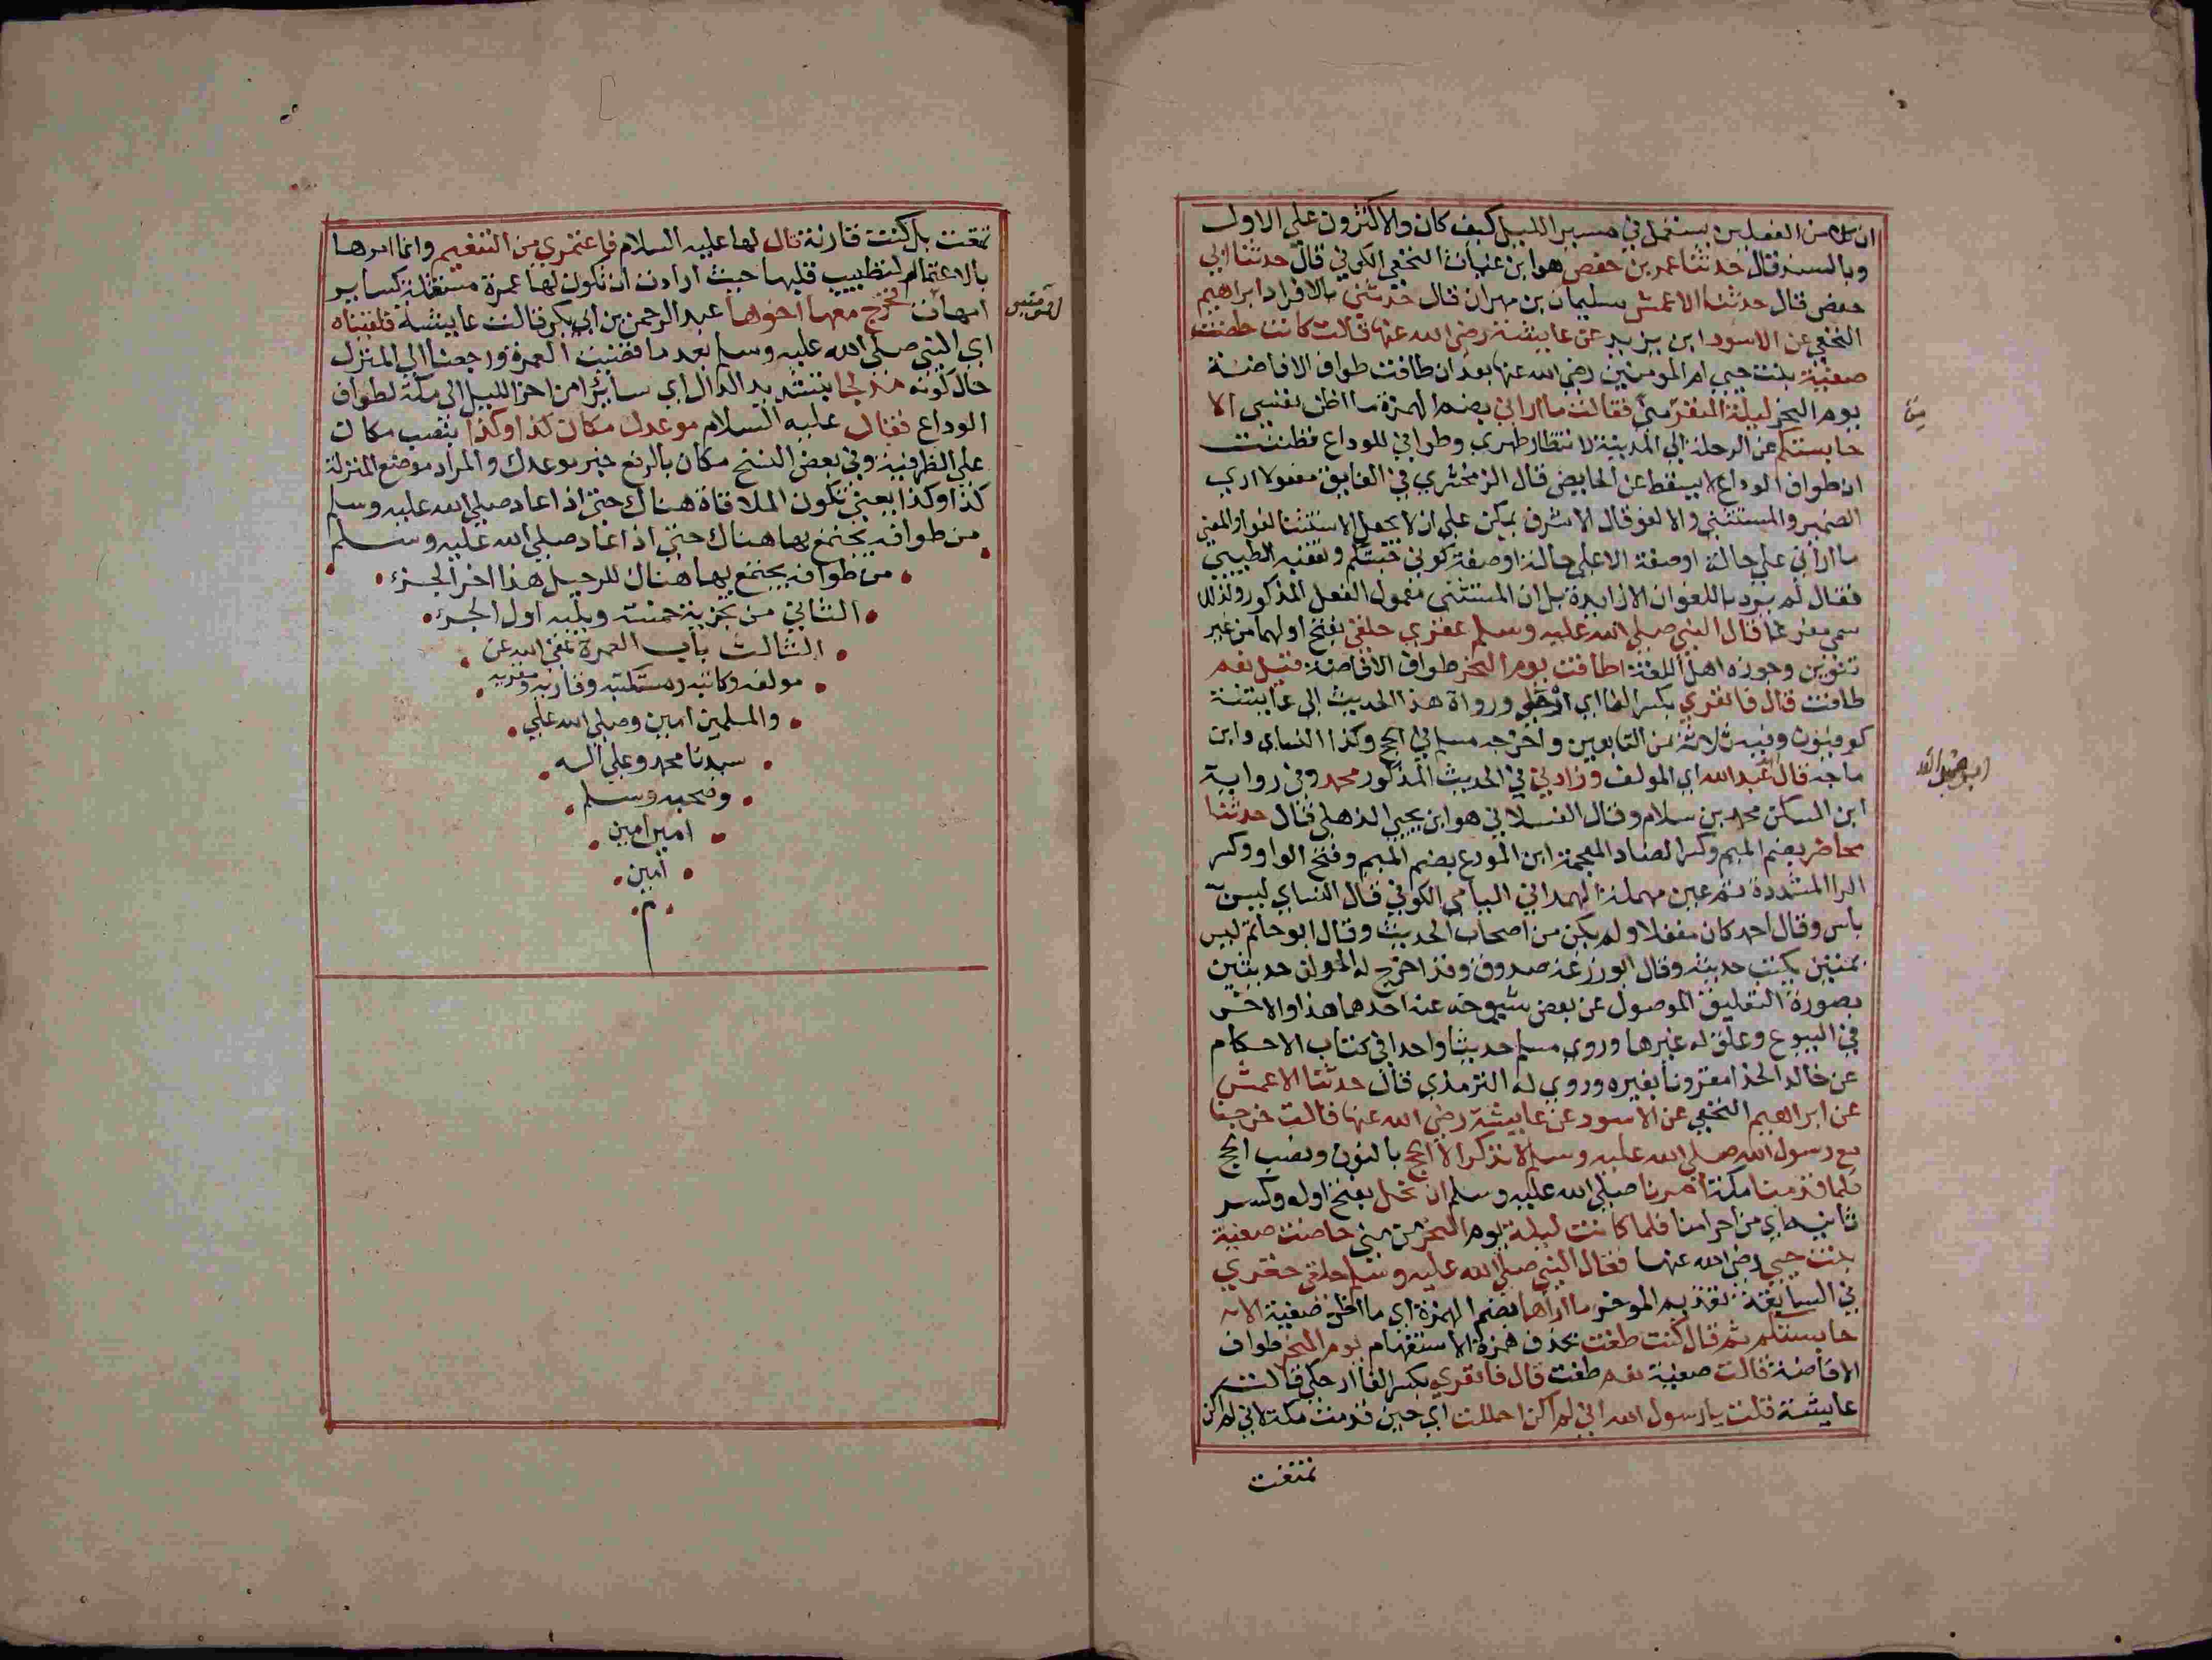 ان كلا من الفعلين يستعمل في مسير الليل كيف كان والاكثرون علي الاول
وبالسند قال حدثنا عمر بن حفص هو ابن غياث النخعي الكوفي قال حدثنا ابي
حفص قال حدثنا الاعمش سليمان بن مهران قال حدثني بالافراد ابراهيم
النخعي عن الاسود ابن يزيد عن عايشة رضي الله عنها قالت حاضت
صفية بنت حيي ام المومنين رضي الله عنها بعد ان طافت طواف الافاضة
يوم النحر ليلة النفر من فقالت ما اراني بضم الهمزة ما اظن نفسي الا
حابستكم عن الرحلة الي المدينة لانتظار طهري وطوافي للوداع فظننت
ان طواف الوداع لا يسقط عن الحايض قال الزمخشري في الفايق مفعولا اري
الضمير والمستثني والا لغو قال الاشرف يمكن علي ان لا يجعل الاستثنا لغوا والمعني
ما اراني علي حالة او صفة الا علي حالة او صفة كوني حبستكم وتعقبه الطيبي
فقال لم يرد باللغو ان الا زايدة بل ان المستثني معمول الفعل المذكور ولذلك
سمي مفرغا قال النبي صلي الله عليه وسلم عقري حلقي بفتح اولهما من غير
تنوين وجوزه اهل اللغة اطافت يوم النحر طواف الافاضة قيل نعم
طافت قال فانفري بكسر الفا اي ارحلي ورواة هذا الحديث الي عايشة
كوفيون وفيه ثلاثة من التابعين واخرجه مسلم في الحج وكذا النساي وابن
ماجه قال عبد الله اي المولف وزادني في الحديث المذكور محمد وفي رواية
ابن السكن محمد بن سلام وقال الغسلاني هو ابن يحيي الذهلي قال حدثنا
محاضر بضم الميم وكسر الضاد المعجمة ابن المورع بضم الميم وفتح الواو وكسر
الرا المشددة ثم عين مهملة الهمداني اليامي الكوفي قال النساي ليس به
باس وقال احمد كان مغفلا ولم يكن من اصحاب الحديث وقال ابو حاتم ليس
بمتين يكتب حديثه وقال ابو زرعة صدوق وقد اخرج له المولف حديثين
بصورة التعليق الموصول عن بعض شيوخه عنه احدهما هذا والاخر
في البيوع وعلق له غيرها وروي مسلم حديثا واحدا في كتاب الاحكام
عن خالد الحذا مقرونا بغيره وروي له الترمذي قال حدثنا الاعمش
عن ابراهيم النخعي عن الاسود عن عايشة رضي الله عنها قالت خرجنا
مع رسول الله صلي الله عليه وسلم لا نذكر الا الحج بالنون ونصب الحج
فلما قدمنا مكة امرنا صلي الله عليه وسلم ان نحل بفتح اوله وكسر
ثانيه اي من احرامنا فلما كانت ليلة يوم النحر من مني حاضت صفية
بنت حيي رضي الله عنها فقال النبي صلي الله عليه وسلم حلقي عقري
في السابقة تقديم الموخر ما اراها بضم الهمزة اي ما اظن صفية الا
حابستكم ثم قال كنت طفت بحذف همزة الاستفهام يوم النحر طواف
الافاضة قالت صفية نعم طفت قال فانفري بكسر الفا ارحلي قالت
عايشة قلت يا رسول الله اني لم اكن احللت اي حين قدمت مكة لاني لم اكن
ابو عبد الله
تمتعت
تمتعت بل كنت قارنة قال لها عليه السلام فاعتمري من التنعيم وانما امرها
بالاعتمار لتطييب قلبها حيث ارادت ان تكون لها عمرة مستقلة كساير
امهات فخرج معها اخوها عبد الرحمن بن ابي بكر قالت عايشة فلقيناه
المومنين
اي النبي صلي الله عليه وسلم بعد ما قضيت العمرة ورجعنا الي المنزل
حال كونه مدلجا بتشديد الدال اي سايرا من اخر الليل الي مكة لطواف
الوداع فقال عليه السلام موعدك مكان كذا وكذا بنصب مكان
علي الظرفية وفي بعض النسخ مكان بالرفع خبر موعدك والمراد موضع المنزلة
كذا وكذا يعني تكون الملاقاة هناك حتي اذا عاد صلي الله عليه وسلم
من طوافه يجتمع بها هناك حتي اذا عاد صلي الله عليه وسلم
من طوافه يجتمع بها هناك للرحيل هذا اخر الجزء
الثاني من تجزية خمسة ويليه اول الجزء
الثالث باب العمرة عفي الله عن
مولفه وكاتبه ومستكتبه وقاريه
والمسلمين امين وصلي الله علي
سيدنا محمد وعلي اله
وصحبه وسلم
امين امين
امين
م